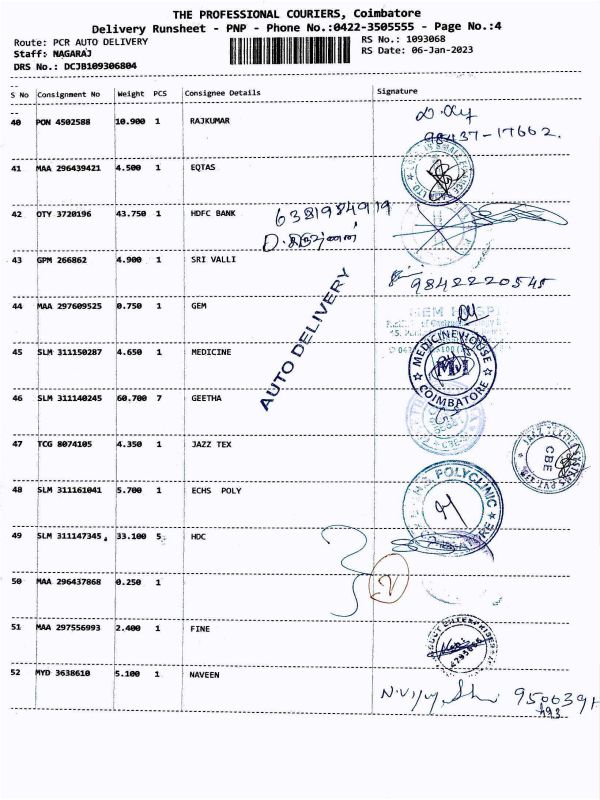 THE PROFESSIONAL COURIERS, Coimbatore
Delivery Runsheet - PNP - Phone No.:0422-3505555 - Page No.:4
Route: PCR AUTO DELIVERY RS No.: 1093068
Staff: NAGARAJ RS Date: 06-Jan-2023
DRS No.: DCJB109306804
S No Consignment No Weight PCS Consignee Details Signature
40 PON 4502588 10.900 1 RAJKUMAR
98437-17662.
41 MAA 296439421 4.500 1 EQTAS
42 OTY 3720196 43.750 1 HDFC BANK 6381984919
43 GPM 266862 4.900 1 SRI VALLI 9842220545
44 MAA 297609525 0.750 1 GEM
AUTO DELIVERY
45 SLM 311150287 4.650 1 MEDICINE
MEDICINE HOUSE
COIMBATORE
46 SLM 311140245 60.700 7 GEETHA
47 TCG 8074105 4.350 1 JAZZ TEX
CBE
48 SLM 311161041 5.700 1 ECHS POLY
POLYCLINIC
49 SLM 311147345 33.100 5 HDC
50 MAA 296437868 0.250 1
51 MAA 297556993 2.400 1 FINE
52 MYD 3638610 5.100 1 NAVEEN